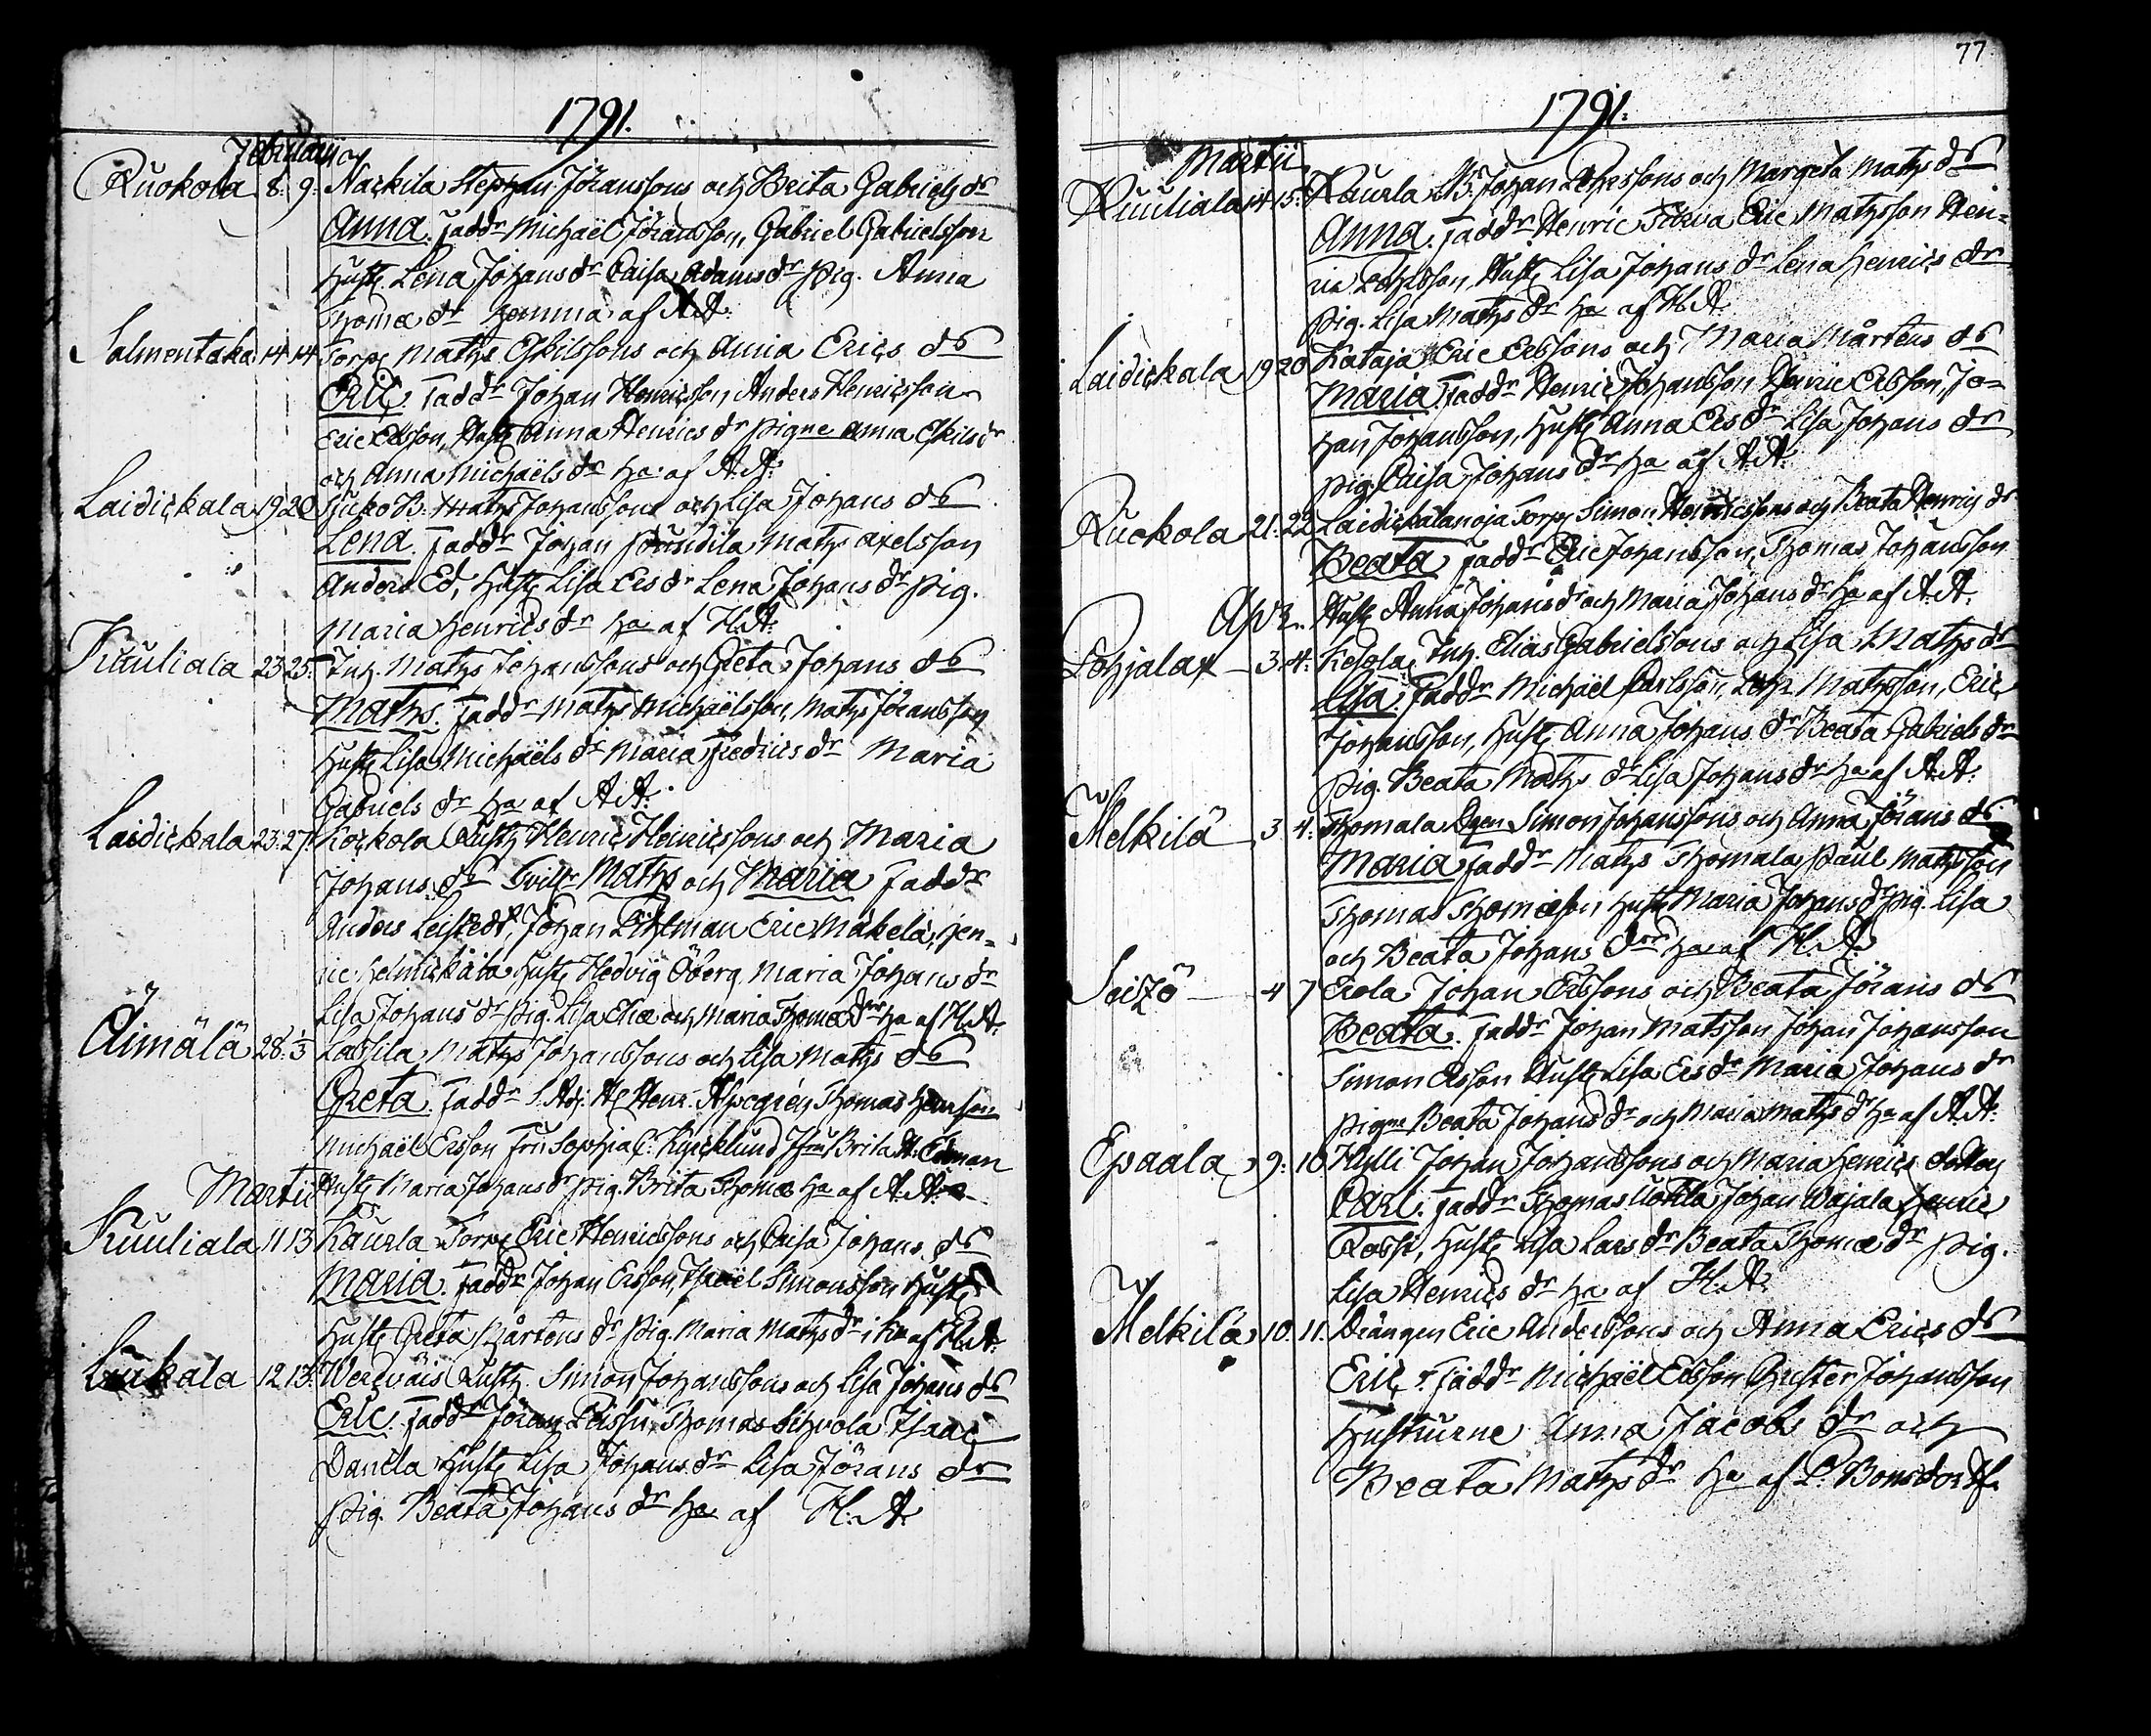 1791.
Februarii
Ruokola 8. 9. Narkila Stephan Jöranssons och Brita Gabriels dr
Anna. Faddr Michaël Jöransson, Gabriel Gabrielsson
Hust. Lena Johans dr Caisa Adams dr pig. Anna
Thomæ dr hemma af A.A.
Salmentaka 14 14 Torp. Maths Eskilssons och Anna Erics dr
Eric. Faddr Johan Henricsson Anders Henricsson
Eric Ersson, Hust. Anna Henrics dr pigne Anna Eskils dr
och Anna Michaëls dr ha af A.A.
Laidickala 19 20 B. Maths Johanssons och Lisa Johans dr
Lena. Faddr Johan Maths Axelsson
Anders Ed, Hust. Lisa Ers dr Lena Johans dr pig.
Maria Henrics dr ha af H.A.
Kuuliala 23 25. Inh. Maths Johanssons och Greta Johans dr
Maths. Faddr Maths Michaëlsson, Maths Jöransson
Hust. Lisa Michaëls dr Maria Fredrics dr Maria
Gabriels dr ha af A.A.
Laidickala 23. 27. Kockola Rusth. Henric Henricssons och Maria
Johans dr Tvill. Maths och Maria Faddr
Anders Leistedt, Johan Lihlman Eric Mäkelä, Hen-
ric Heinickala Hust. Hedvig Öberg. Maria Johans dr
Lisa Johans dr pig. Lisa Eliæ och Maria Thomæ drr ha af H.A.
Äimälä 28. 1/3 Lassila Maths Johanssons och Lisa Maths dr
Greta. Faddr S. Adj. H. Henr. Alpegrén Thomas Hansson
Michaël Ersson Fru Sophia C. Kyrcklund Jfru Brita H. Edman
Martii Hust. Maria Johans dr pig. Brita Thomæ ha af A.A.
Kuuliala 11 13 Kaurla Torp. Eric Henricssons och Caisa Johans dr
Maria. Faddr Johan Ersson, Israël Simonsson Hust.
Hust. Greta Mårtens dr pig. Maria Maths dr ha af H.A.
Liukala 12 13. Rusth. Simon Johanssons och Lisa Johans dr
Eric. Faddr Jöran Thomas Isaac
Danéla Hust. Lisa Johans dr Lisa Jörans dr
pig. Beata Johans dr ha af H.A.
77
1791.
Martii
Kuuliala 14 15. Kaurla B. Johan Johanssons och Margeta Maths dr
Anna. Faddr Henric Eric Mathsson Hen-
ric Hust. Lisa Johans dr Lena Henrics dr
pig. Lisa Maths dr ha af H.A.
Laidickala 19 20 Kataja Eric Erssons och Maria Mårtens dr
Maria. Faddr Henric Johansson Henric Ersson, Jo-
han Johansson, Hust. Anna Ers dr Lisa Johans dr
pig. Caisa Johans dr ha af A.A.
Ruokola 21. 22 Laidickalanoja Torp. Simon Henricssons och Beata Henrics dr
Beata Faddr Eric Johansson, Thomas Johansson
Apr. Hust. Anna Johans dr och Maria Johans dr ha af A.A.
Lohjala 3. 4. Kelola Inh. Elias Gabrielssons och Lisa Maths dr
Lisa. Faddr Michaël Carlsson, Mathsson, Eric
Johansson, Hust. Anna Johans dr Beata Gabriels dr
pig. Beata Maths dr Lisa Johans dr ha af A.A.
Melkilä 3 4. Thomala Simon Johanssons och Anna Jörans dr
Maria Faddr Maths Thomala, Paul Mathsson
Thomas Thomæson, Hust. Maria Johans dr pig. Lisa
och Beata Johans drr ha af H.A.
4 7 Erola Johan Erssons och Beata Jörans dr
Beata. Faddr Johan Matsson Johan Johansson
Simon Ersson Hust. Lisa Ers dr Maria Johans dr
pigne Beata Johans dr och Maria Maths dr ha af A.A.
Epaala 9. 10 Hylli Johan Johanssons och Maria Henrics dr
Carl. Faddr Thomas Uotila Johan Wajala Henric
Rossi, Hust. Lisa Lars dr Beata Thomæ dr pig.
Lisa Henrics dr ha af H.A.
Melkilä 10. 11. Drängen Eric Anderssons och Anna Erics dr
Eric. Faddr Michaël Ersson Christer Johansson
Hustrurne Anna Jacobs dr och
Beata Maths dr ha af P. Bonsdorff.